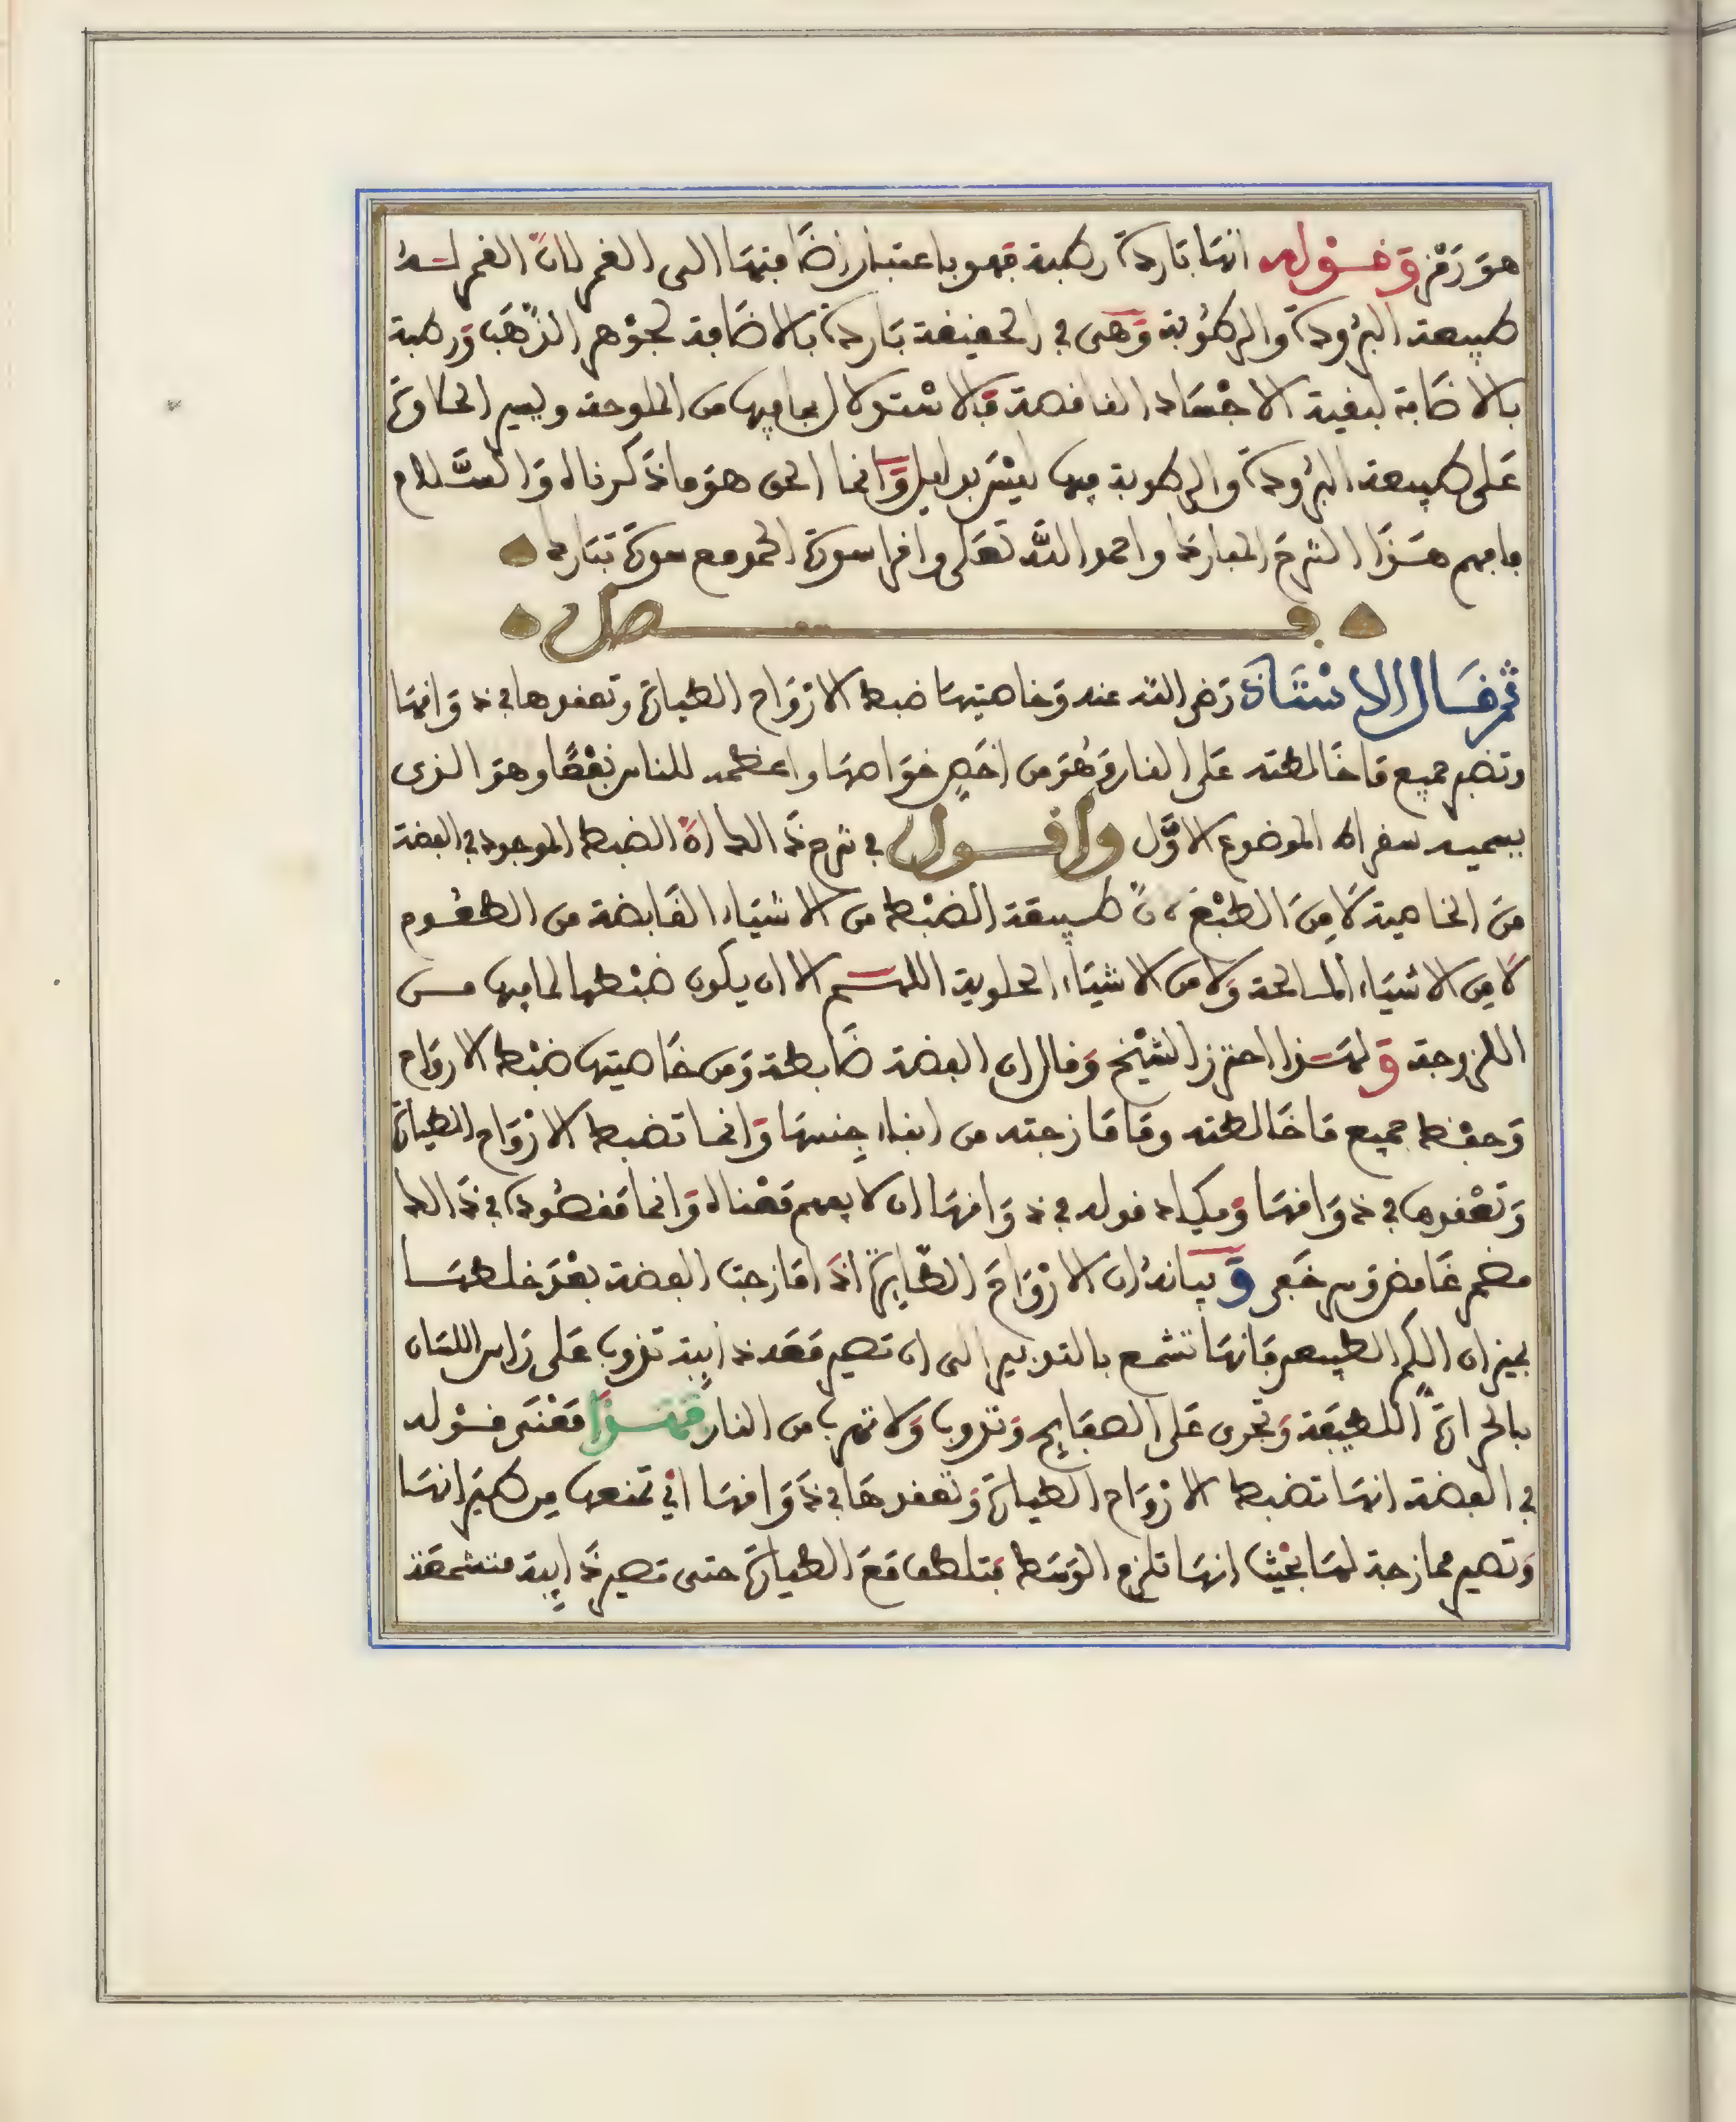 هو رمز وقوله انها باردة رطبة فهو باعتبار إضافتها الى القمر لان القمر له
طبيعة البرودة والرطوبة وهى في الحقيقة باردة بالاضافة لجوهر الذهب ورطبة
بالاضافة لبقية الاجساد الناقصة فالاستدلال بما فيها من الملوحة ويسير الحلاوة
على طبيعة البرودة والرطوبة فيها ليس بدليل وانما الحق هو ما ذكرناه والسلام
فافهم هذا الشرح المبارك واحمد الله تعلى واقرا سورة الحمد مع سورة تبارك
فصل
ثم قال الاستاذ رضي الله عنه وخاصيتها ضبط الارواح الطيارة وتعقدها في ذوانها
وتصبر جميع ما خالطته على النار وهو من اخص خواصها واعظمه للناس نفعا وهو الذى
يسميه سقراط الموضوع الاول واقول في شرح ذالك ان الضبط الموجود في الفضة
من الخاصية لا من الطبع لان طبيعة الضبط من الاشياء القابضة من الطعوم
لا من الاشياء المالحة ولا من الاشياء الحلوية اللهم الا ان يكون ضبطها لما فيها من
اللزوجة ولهذا احترز الشيخ وقال ان الفضة ضابطة ومن خاصيتها ضبط الارواح
وحفظ جميع ما خالطته وما مازجته من ابناء جنسها وانما تضبط الارواح الطيارة
وتعقدها في ذوانها ومكياد قوله في ذوانها ان لا يفهم معناه وانما مقصوده في ذالك
مضمر غامض وسر خفى وبيانه ان الارواح الطايرة اذا مازجت الفضة بعد خلطها
بميزان الكم الطبيعى فانها تشمع بالتدبير الى ان تصير معه ذايبة تذوب على راس اللسان
بالحرارة اللطيفة وتجرى على الصفايح وتذوب ولا تهرب من النار فهذا معنى قوله
في الفضة انها تضبط الارواح الطيارة وتعقدها في ذوانها اي تمنعها من طيرانها
وتصير ممازجة لها بحيث انها تلزم الوسط فتلطف مع الطيارة حتى تصير ذايبة متشمعة